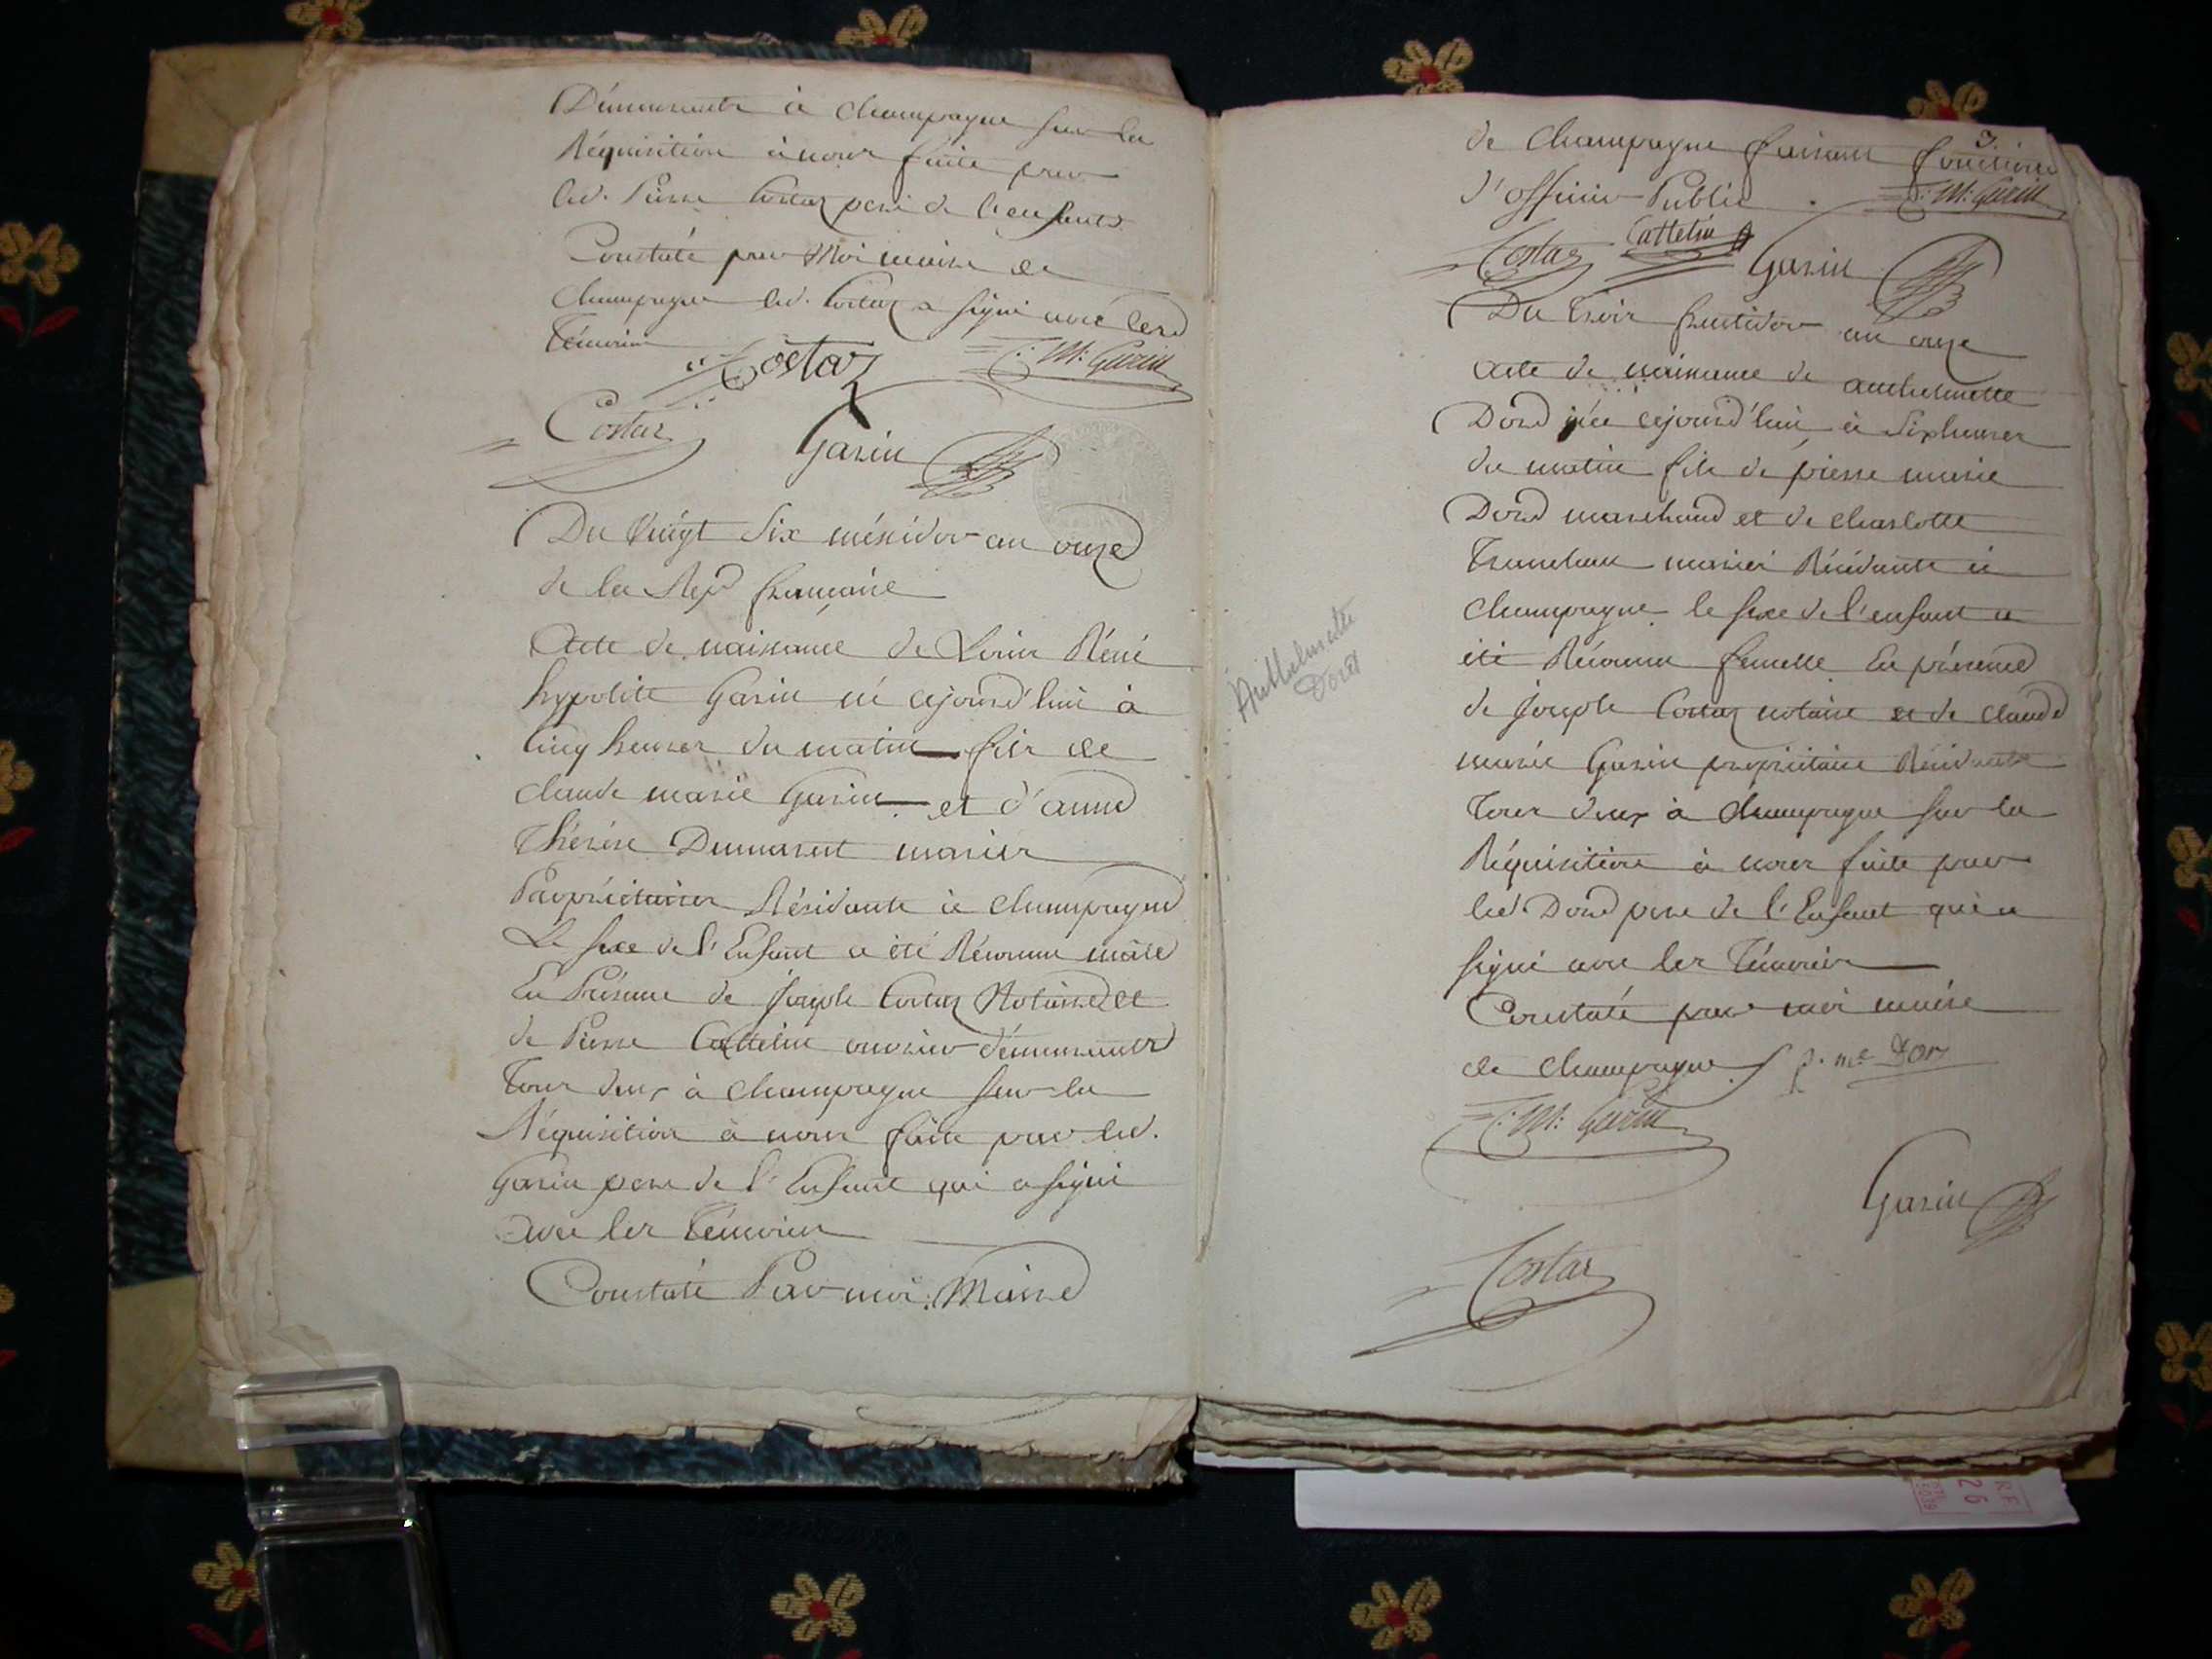 Démeurants à champagne sur la
Réquisition à nous faite par
led. Pierre Costaz pere de l'enfant
Constaté par Moi maire de
champagne led. Costaz a signé avec les d
Témoins
Costaz
C: M: Garin
Costaz
Garin
Du vingt six méssidor an onze
de la Rep. francaise
Acte de naissance de Réné
hypolite Garin né cejourd'hui à
cinq heures du matin fils de
claude marie Garin et d'anne
thérése Dumarest mariés
Propriétaires Résidants à champagne
Le sexe de l'Enfant a été Réconnu mâle
En Présence de Joseph Costaz Notaire et
de Pierre Cattelin ouvrier démeurants
Tous deux à champagne sur la
Réquisition à nous faite par led.
Garin pere de l'Enfant qui a signé
avec les Témoins
Constaté Par moi Maire
3.
de Champagne faisant fonctions
d'officier Public.
C: M: Garin
Costaz
Cattelin
Garin
Du trois fructidor an onze
Acte de naissance de anthelmette
Dord née cejourd'hui à six heures
du matin file de pierre marie
Dord marchand et de charlotte
mariés Résidants à
champagne le sexe de l'enfant a
été Réconnu femelle En présence
de Joseph Costaz notaire et de claude
marie Garin propriétaire Résidants
tous deux à champagne sur la
Réquisition à nous faite par
led. Dord pere de l'Enfant qui a
signé avec les Témoins
Constaté par moi maire
de champagne
p. me Dor
C: M: Garin
Garin
Costaz
Anthelmette
RF
26